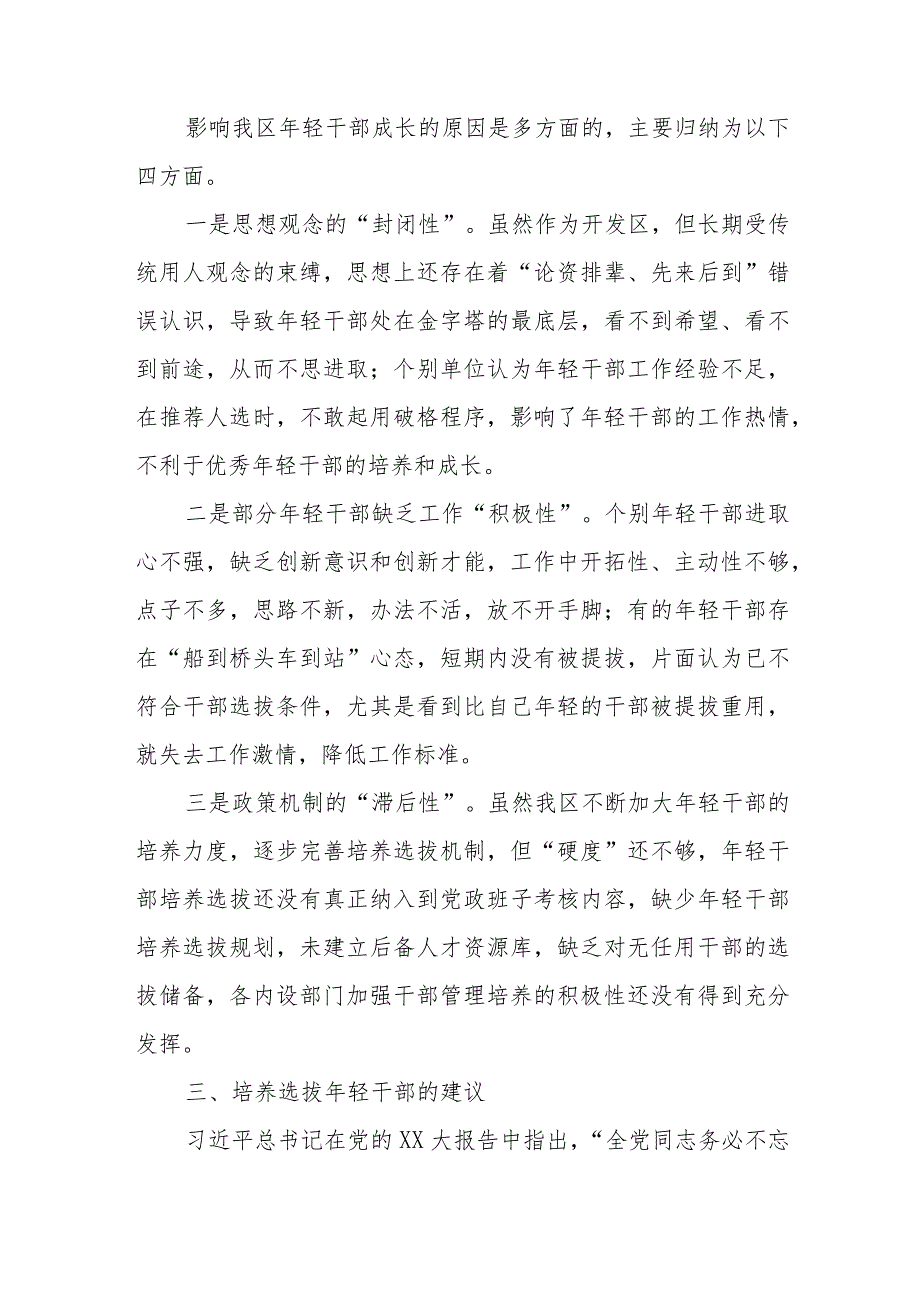 影响我区年轻干部成长的原因是多方面的，主要归纳为以下
四方面。
一是思想观念的“封闭性”。虽然作为开发区，但长期受传
统用人观念的束缚，思想上还存在着“论资排辈、先来后到”错
误认识，导致年轻干部处在金字塔的最底层，看不到希望、看不
到前途，从而不思进取；个别单位认为年轻干部工作经验不足，
在推荐人选时，不敢起用破格程序，影响了年轻干部的工作热情，
不利于优秀年轻干部的培养和成长。
二是部分年轻干部缺乏工作“积极性”。个别年轻干部进取
心不强，缺乏创新意识和创新才能，工作中开拓性、主动性不够，
点子不多，思路不新，办法不活，放不开手脚；有的年轻干部存
在“船到桥头车到站”心态，短期内没有被提拔，片面认为已不
符合干部选拔条件，尤其是看到比自己年轻的干部被提拔重用，
就失去工作激情，降低工作标准。
三是政策机制的“滞后性”。虽然我区不断加大年轻干部的
培养力度，逐步完善培养选拔机制，但“硬度”还不够，年轻干
部培养选拔还没有真正纳入到党政班子考核内容，缺少年轻干部
培养选拔规划，未建立后备人才资源库，缺乏对无任用干部的选
拔储备，各内设部门加强干部管理培养的积极性还没有得到充分
发挥。
三、培养选拔年轻干部的建议
习近平总书记在党的 XX 大报告中指出，“全党同志务必不忘